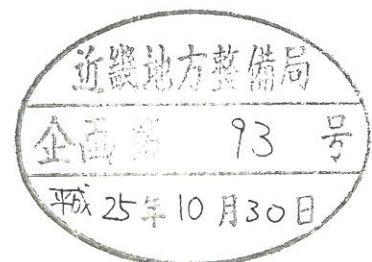 近畿地方整備局
企画第 93 号
平成 25年 10月30日